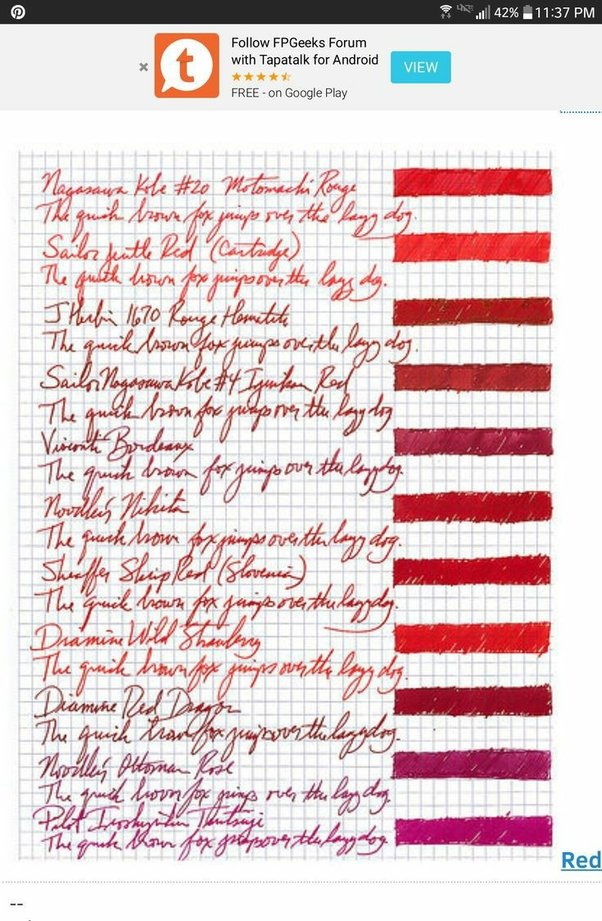 42% 11:37 PM
Follow FPGeeks Forum
with Tapatalk for Android
FREE - on Google Play
VIEW
Nagasawa Kobe #20 Motomachi Rouge
The quick brown fox jumps over the lazy dog.
Sailor Jentle Red (Cartridge)
The quick brown fox jumps over the lazy dog.
J Herbin 1670 Rouge Hematite
The quick brown fox jumps over the lazy dog.
Sailor Nagasawa Kobe #4 Red
The quick brown fox jumps over the lazy dog
Visconti Bordeaux
The quick brown fox jumps over the lazy dog.
Noodler's Nikita
The quick brown fox jumps over the lazy dog.
Sheaffer Skrip Red (Slovenia)
The quick brown fox jumps over the lazy dog.
Diamine Wild Strawberry
The quick brown fox jumps over the lazy dog.
Diamine Red Dragon
The quick brown fox jumps over the lazy dog.
Noodler's Ottoman Rose
The quick brown fox jumps over the lazy dog.
Pilot Iroshizuku Tsutsuji
The quick brown fox jumps over the lazy dog.
Red
--